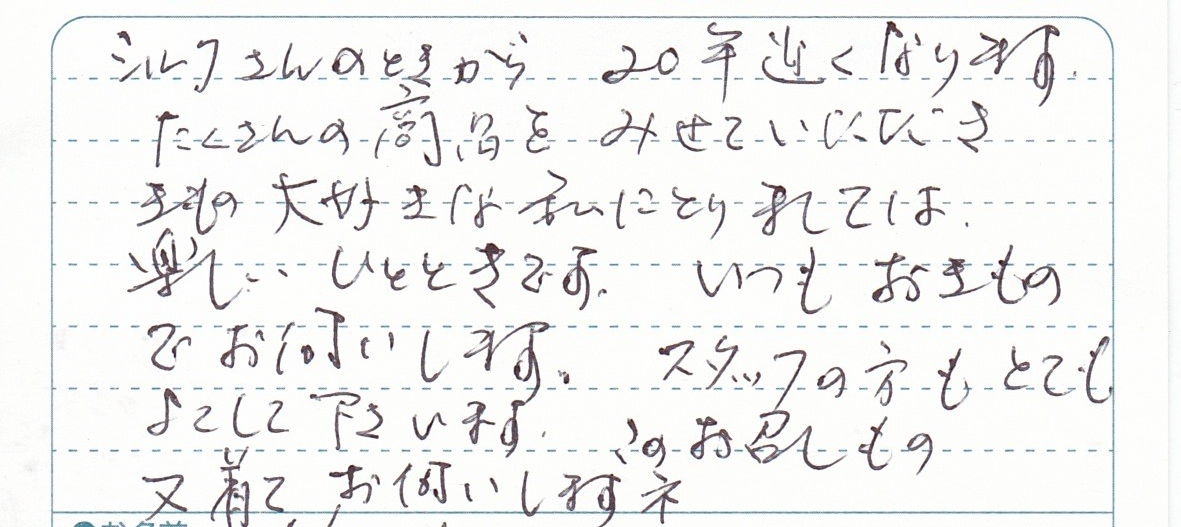 シルクさんのときから 20年近くなります.
たくさんの商品を みせていただき
きもの 大好きな私にとりましては.
楽しい ひとときです. いつも おきもの
で お伺いします. スタッフの方も とても
よくして下さいます. このお召しもの
又着て お伺いしますネ
お名前